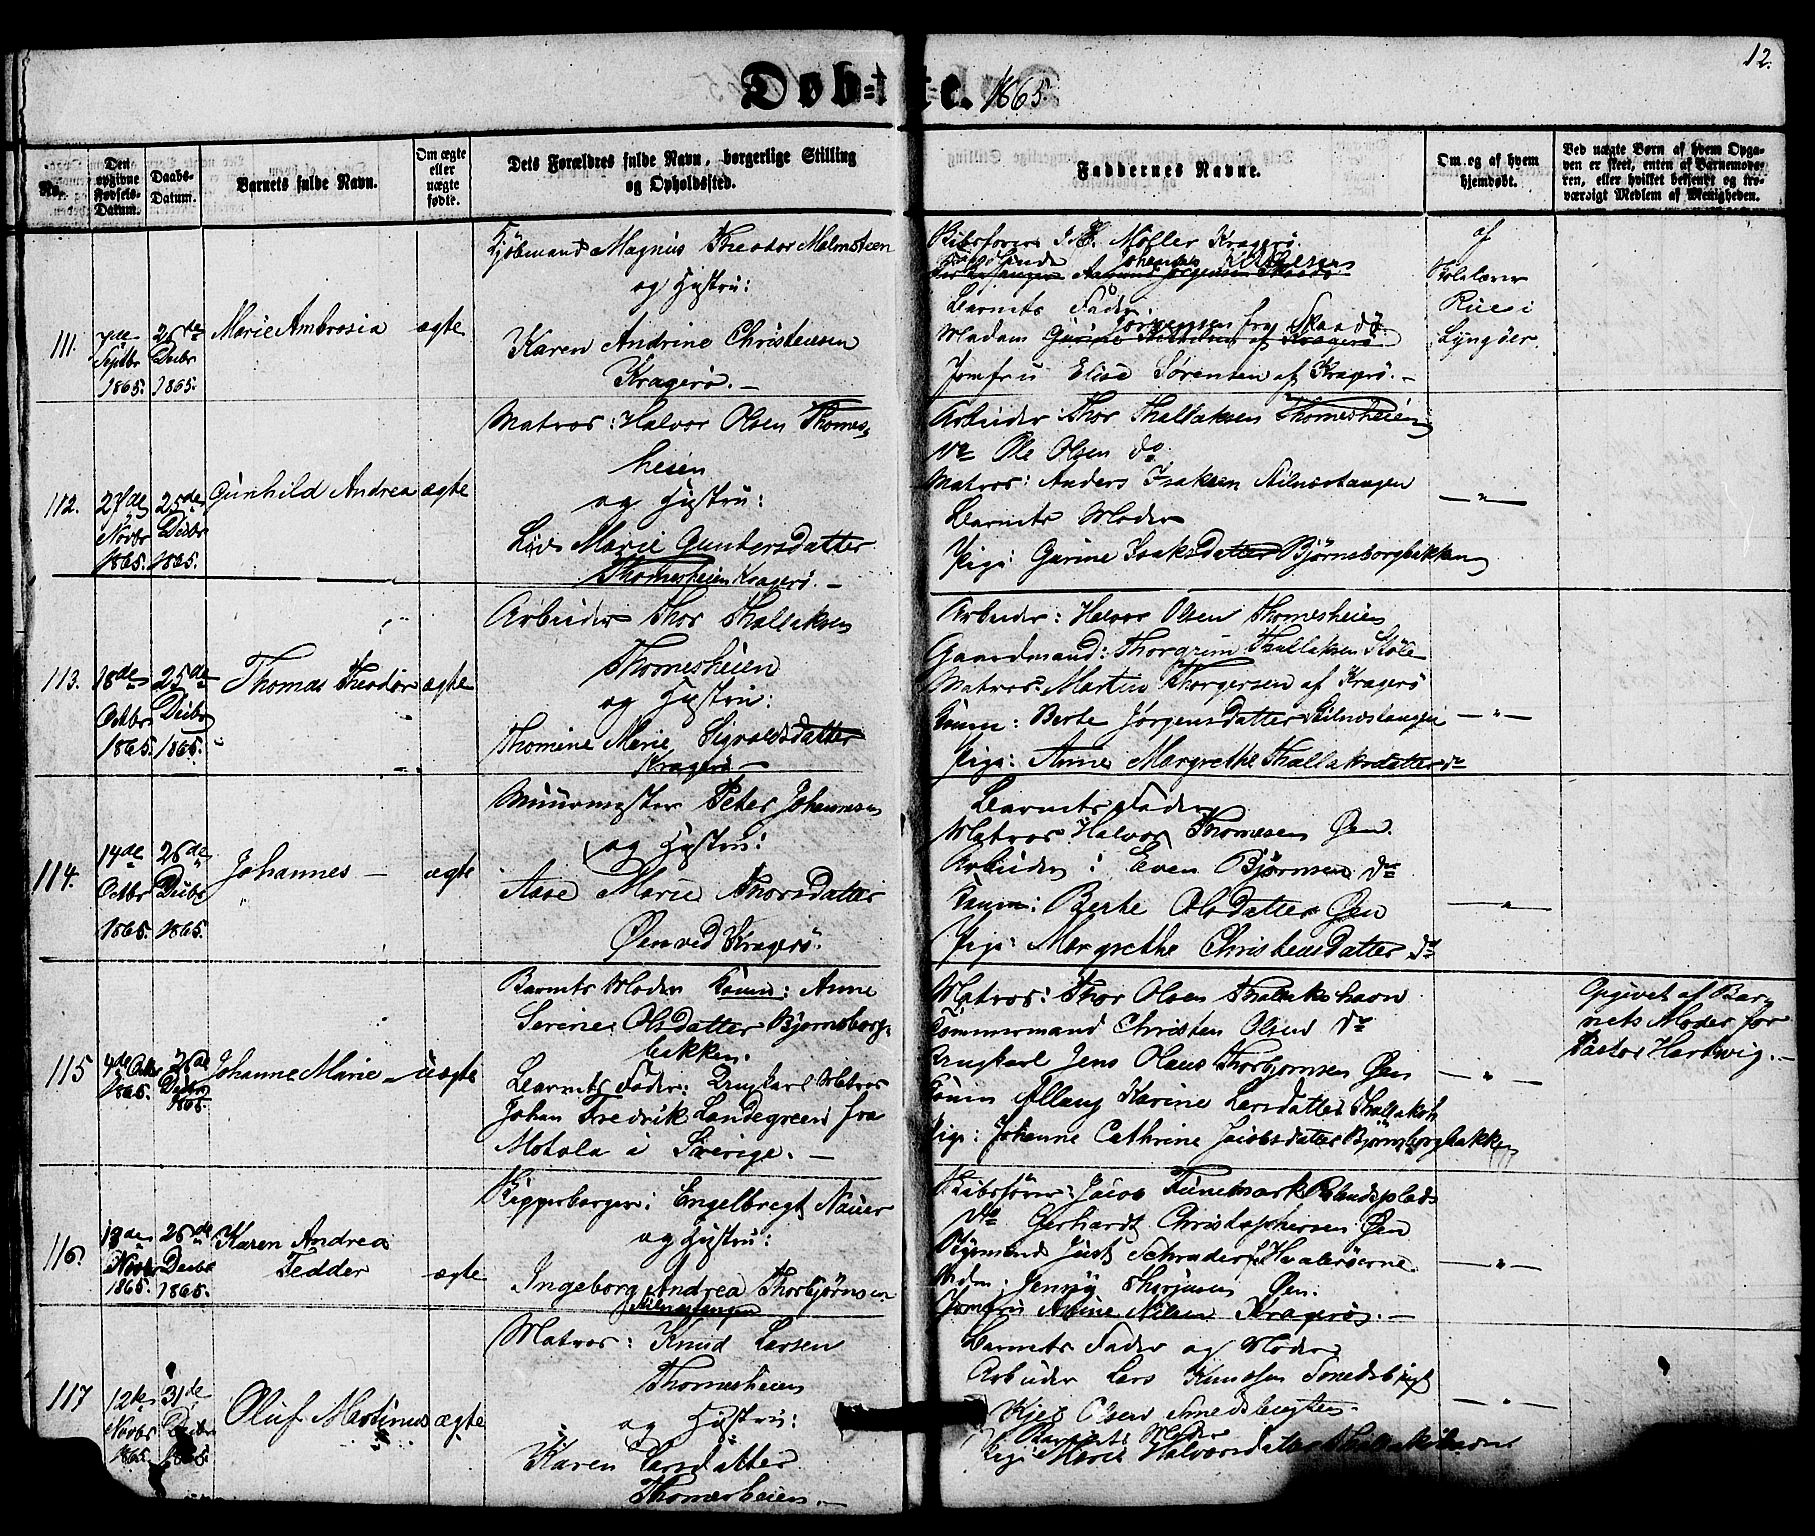 12.
Døb=te. 1865.
No.
Den opgivne Fødsels-Datum.
Daabs-Datum.
Barnets fulde Navn.
Om ægte eller uægte fødte.
Dets Forældres fulde Navn, borgerlige Stilling og Opholdssted.
Faddernes Navne.
Om og af hvem hjemdøbt.
Ved uægte Børn af hvem Opgaven er skeet, enten af Barnemoderen, eller hvilket bekjendt og troværdigt Medlem af Menigheden.
111.
7de Septbr 1865.
26de Decbr 1865.
Marie Ambrosia
ægte
Kjøbmand Magnus Theodor Malmsteen
og Hustru:
Karen Andrine Christensen
Kragerø. —
Skibsfører J. Møller Kragerø.
Barnets Fader
Madam Jørgensen fra Skaadø
Jomfru Elise Sørensen af Kragerø. —
af
Skolelærer
i
Lyngøer.
112.
27de Novbr 1865.
25de Decbr 1865.
Gunhild Andrea
ægte
Matros: Halvor Olsen Thomes-
heien
og Hustru:
Marie Guntersdatter
Thomesheien Kragerø. —
Arbeider: Thor Thallaksen Thomesheien
do Ole Olsen do
Matros: Anders Isaksen Stilnæstangen
Barnets Moder
Pige: Gurine Isaksdatter Bjørnsborgbakken
— " —
113.
18de Octbr 1865.
25de Decbr 1865.
Thomas Theodor
ægte
Arbeider Thor Thallaksen
Thomesheien
og Hustru:
Thomine Marie Sigvaldsdatter
Kragerø —
Arbeider: Halvor Olsen Thomesheien
Gaardmand: Thorgrim Thallaksen Støle
Matros: Martin Thorgersen af Kragerø
Konen: Berte Jørgensdatter Stilnæstangen
Pige: Anne Margrethe Thallaksdatter do
— " —
114.
14de Octbr 1865.
26de Decbr 1865.
Johannes —
ægte
Muurmester Peter Johannesen
og Hustru:
Aase Marie Thorsdatter
Øen ved Kragerø.
Barnets Fader
Matros Halvor Thomesen Øen.
Arbeider: Even Bjørnsen do
Konen: Berte Olsdatter Øen
Pige: Margrethe Christensdatter do
— " —
115
4de Octbr 1865.
26de Decbr 1865.
Johanne Marie —
uægte
Barnets Moder Konen: Anne
Serine Olsdatter Bjørnsborg-
bakken.
Barnets Fader: Ungkarl Matros
Johan Fredrik Landegreen fra
Motola i Sverige. —
Matros: Thor Olsen Thallakshavn
Tømmermand Christen Olsen do
Ungkarl Jens Olaus Thorbjørnsen Øen
Konen Karine Larsdatter Thallaksh
Pige: Johanne Cathrine Jacobsdatter Bjørnsborgbakken
— " —
Opgivet af Bar-
nets Moder for
Pastor Hartwig. —
116.
18de Novbr 1865.
26de Decbr 1865.
Karen Andrea
Fedder
ægte
Skipperborger: Engelbregt Nauer
og Hustru:
Ingeborg Andrea Thorbjørnsen
Stilnæstangen
Skibsfører: Jacob Funemark
do Gerhardt Christophersen Øen
Styrmand Just Schrader fra Haaløerne
Mdm: Jenny Thorjusen Øen.
Jomfru Anine Nilsen Kragerø. —
— " —
117
12te Novbr 1865.
31de Decbr 1865
Oluf Martinus
ægte
Matros: Knud Larsen
Thomesheien
og Hustru:
Karen Larsdatter
Thomesheien. —
Barnets Fader og Moder
Arbeider Lars Knudsen Smedsbugt
Olsen Smedsbugten.
Barnets Moder
Pige Marie Halvorsdatter Thallakshavn
— " —